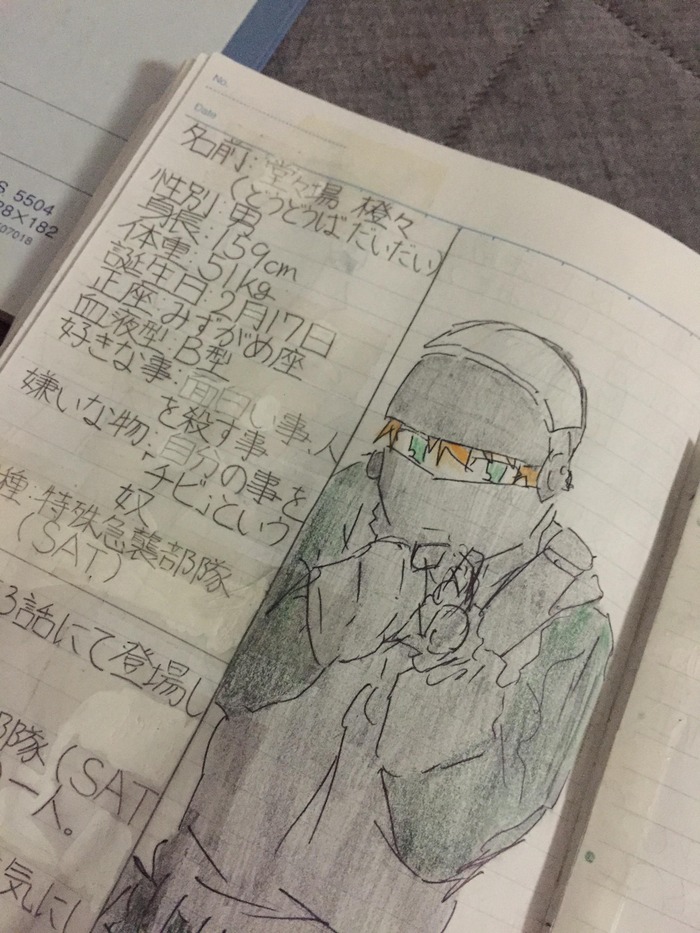 No.
Date
S 5504
28×182
07018
名前:堂々場 橙々
(どうどうば だいだい)
性別:男
身長:159cm
体重:51kg
誕生日:2月17日
正座:みずがめ座
血液型:B型
好きな事:面白い事、人
を殺す事
嫌いな物:自分の事を
「チビ」という
奴
種:特殊急襲部隊
(SAT)
3話にて登場し
部隊(SAT
一人。
気にし